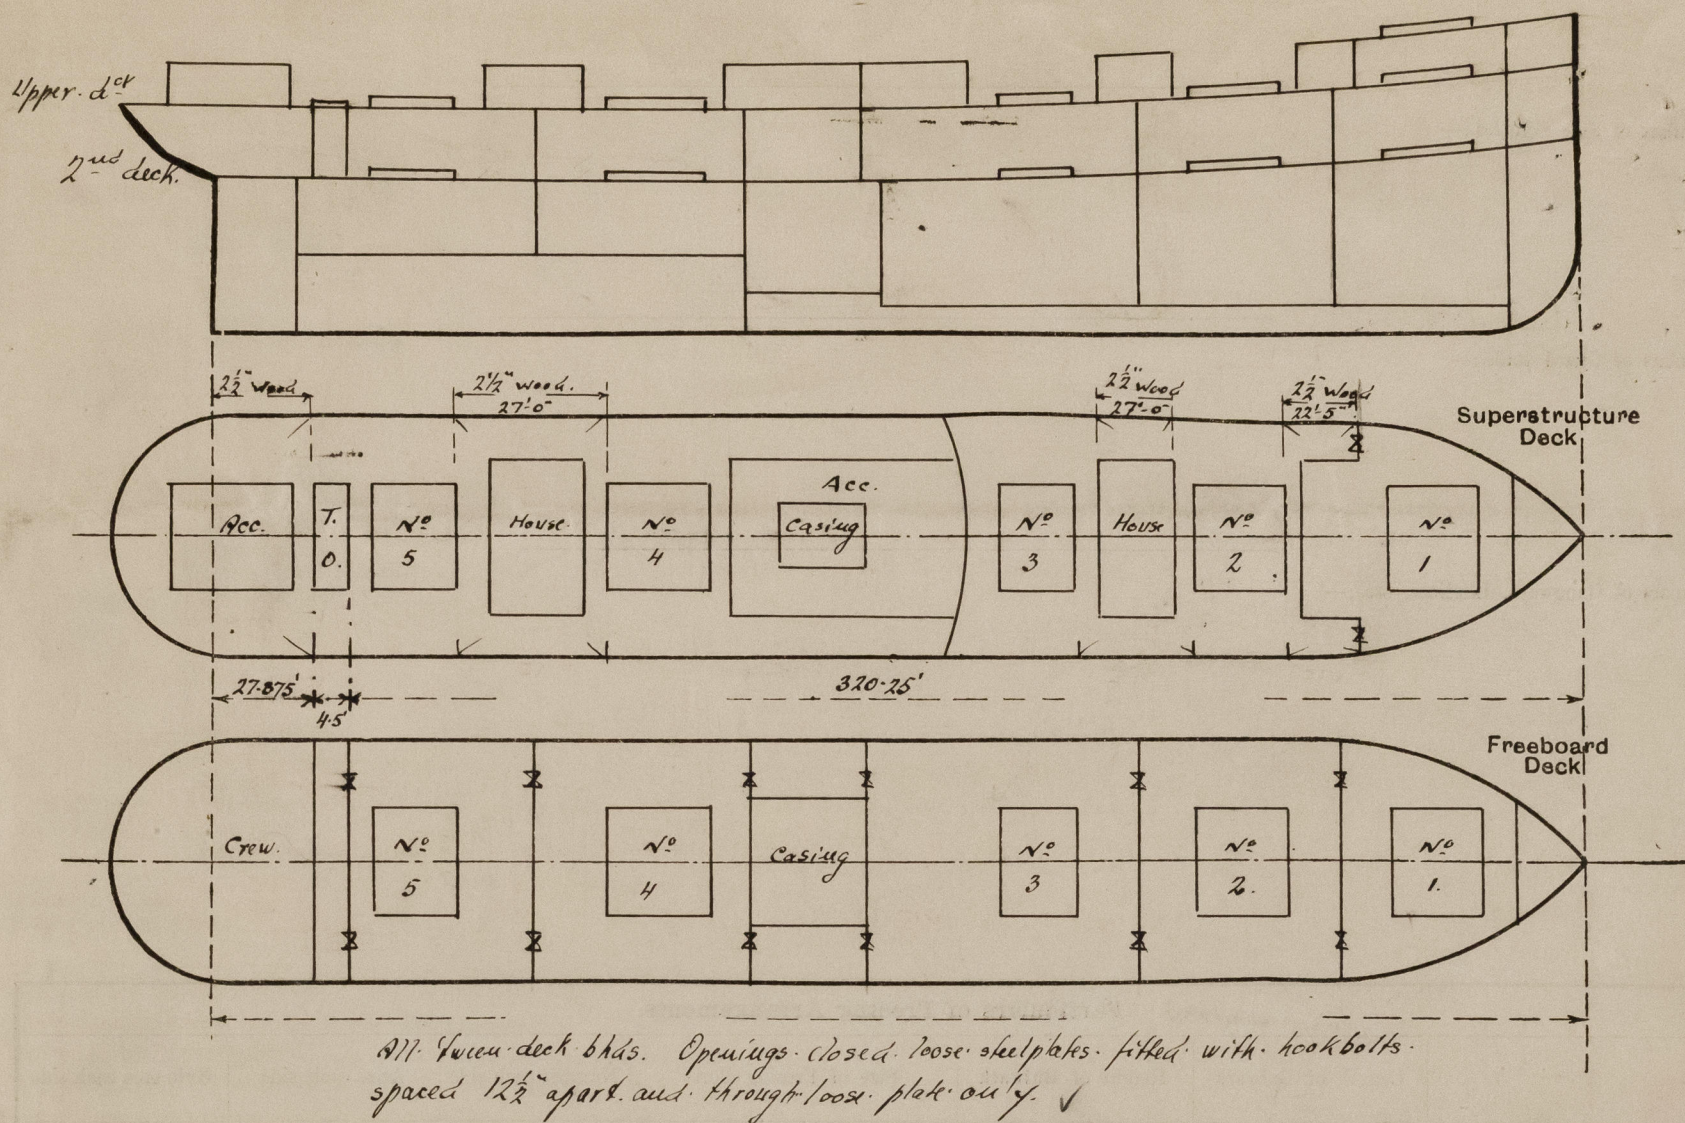 Upper. dck
2nd deck.
2½" wood
2½" wood.
27'-0"
2½" wood
27'-0"
2½" wood
22'-5"
Superstructure
Deck
Acc.
T.
O.
No
5
House.
No
4
Acc.
Casing
No
3
House
No
2
No
1
27.875'
4.5'
320.25'
Freeboard
Deck
Crew.
No
5
No
4
Casing
No
3
No
2.
No
1.
All. 'tween. deck. bhds. Openings. closed. loose. steelplates. fitted. with. hookbolts.
spaced 12½" apart. and. through. loose. plate. only. ✓